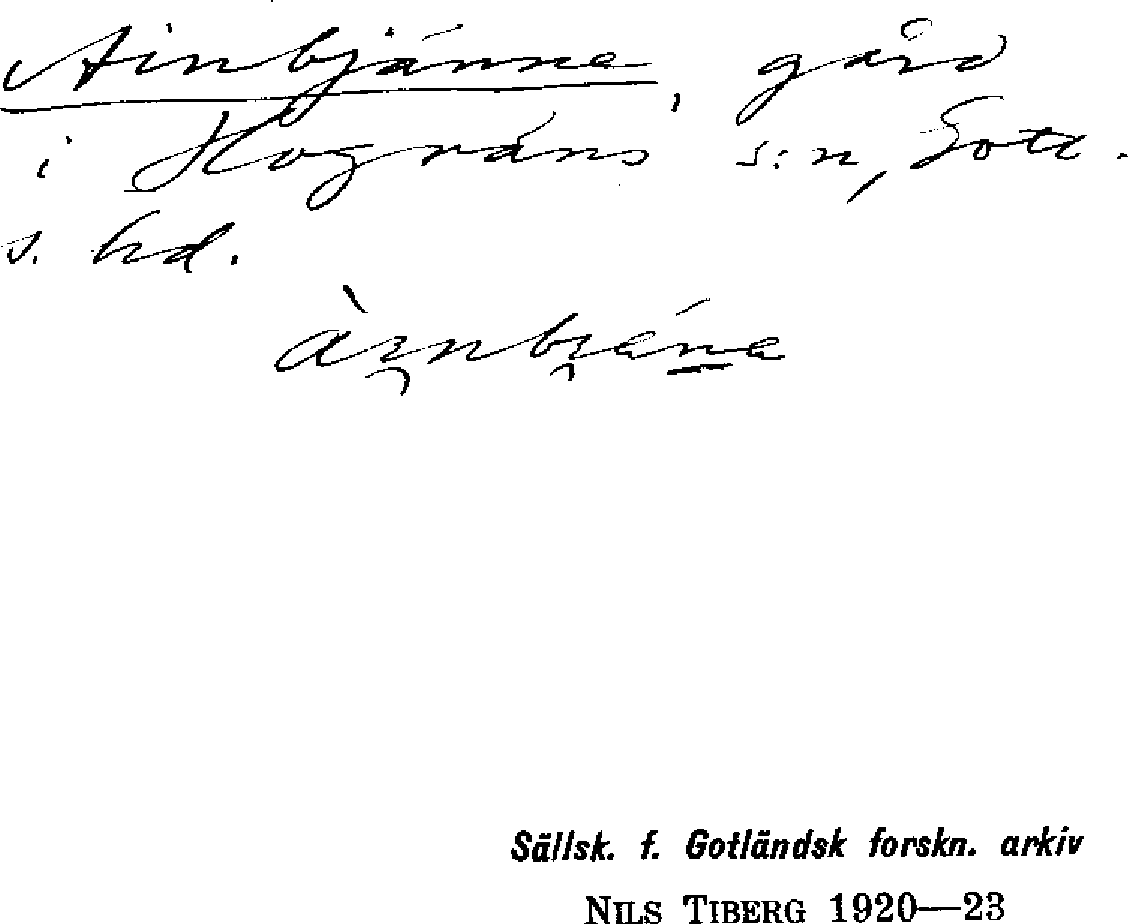 Ainbjänne, gård
i Hogräns s:n, Gotl.
s. hd.
Sällsk. f. Gotländsk forskn. arkiv
NILS TIBERG 1920—23